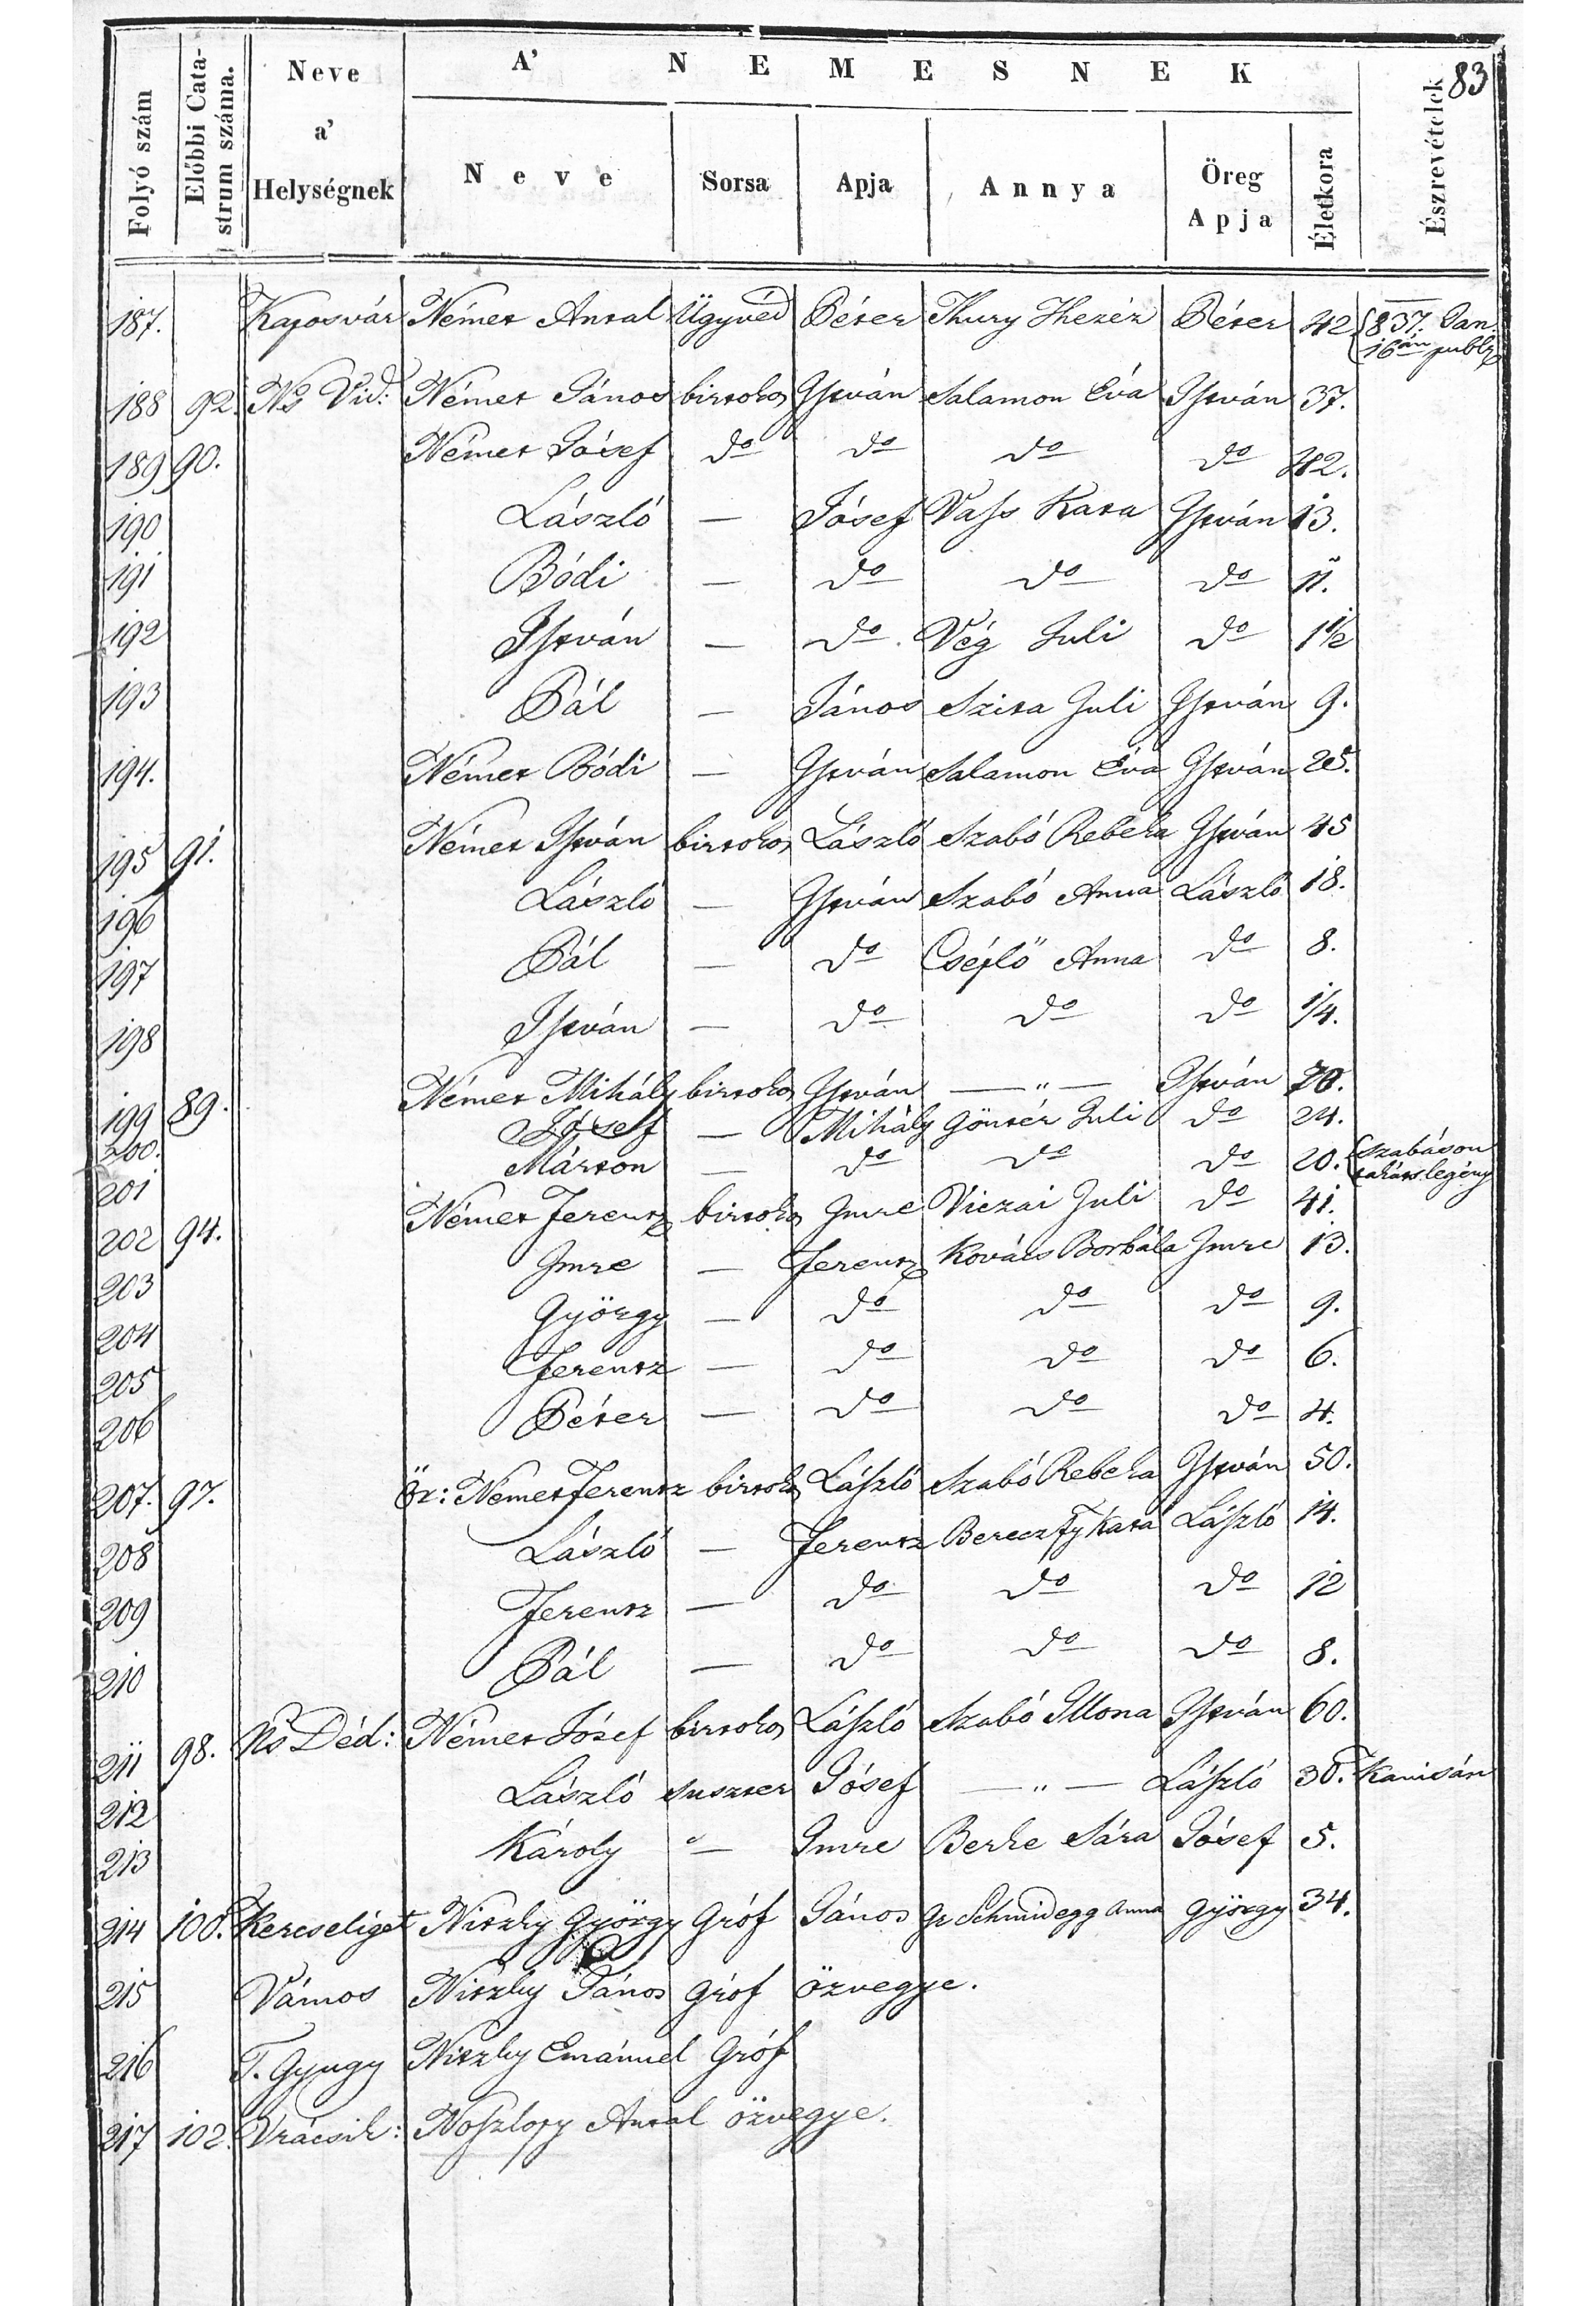 83
A' NEMESNEK
Folyó szám | Előbbi Catastrum száma. | Neve a' Helységnek | Neve | Sorsa | Apja | Annya | Öreg Apja | Életkora | Észrevételek
187. Kaposvár Német Antal Ügyvéd Péter Thury Theréz Péter 42 837. Jan. 16án publ.
188 92. Ns Vid: Német János birtokos István Salamon Éva István 37.
189 90. Német Jósef do do do do 42.
190 László — Jósef Vass Kata István 13.
191 Bódi — do do do 11.
192 István — do Vég Juli do 1 1/2
193 Pál — János Szita Juli István 9.
194. Német Bódi — István Salamon Éva István 25.
195 91. Német István birtokos László Szabó Rebeka István 45
196 László — István Szabó Anna László 18.
197 Pál — do Cséplő Anna do 8.
198 István — do do do 1/4.
199 89. Német Mihály birtokos István — „ — István 70.
200. Jósef — Mihály Göntér Juli do 24.
201 Márton — do do do 20. Szabáson takáts legény
202 94. Német Ferentz birtokos Imre Viczai Juli do 41.
203 Imre — Ferentz Kovács Borbála Imre 13.
204 György — do do do 9.
205 Ferentz — do do do 6.
206 Péter — do do do 4.
207. 97. Ör: Német Ferentz birtokos László Szabó Rebeka István 50.
208 László — Ferentz Bereczfy Kata László 14.
209 Ferentz — do do do 12
210 Pál — do do do 8.
211 98. Ns Déd: Német Jósef birtokos László Szabó Illona István 60.
212 László suszter Jósef — „ — László 30. Kanisán
213 Károly „ — Imre Berke Sára Jósef 5.
214 100. Kercseliget Niczky György Gróf János Gr Schmidegg Anna György 34.
215 Vámos Niczky János Gróf özvegye.
216 T. Gyugy Niczky Emánuel Gróf
217 102. Vrácsik: Noszlopy Antal özvegye.